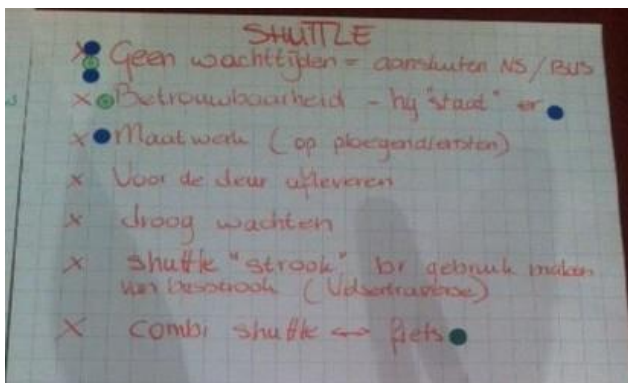 SHUTTLE
x Geen wachttijden = aansluiten NS / BUS
x Betrouwbaarheid - hij "staat" er
x Maatwerk (op ploegendiensten)
x Voor de deur afleveren
x droog wachten
x shuttle "strook" br gebruik maken
van busstrook
x combi shuttle ↔ fiets